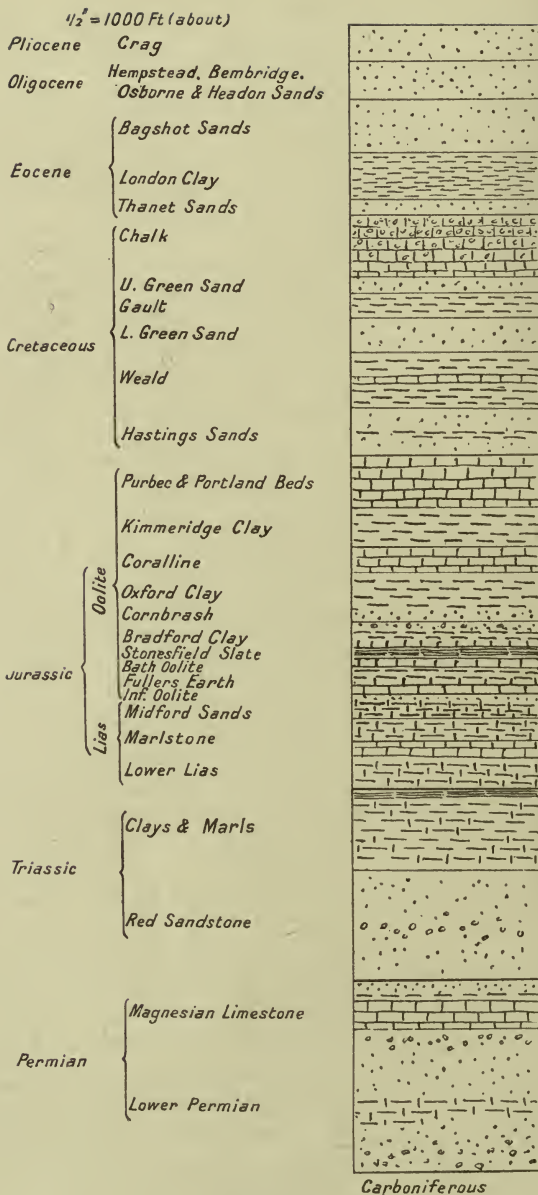 1/2" = 1000 Ft (about)
Pliocene Crag
Oligocene Hempstead, Bembridge,
Osborne & Headon Sands
Eocene
Bagshot Sands
London Clay
Thanet Sands
Cretaceous
Chalk
U. Green Sand
Gault
L. Green Sand
Weald
Hastings Sands
Jurassic
Oolite
Purbec & Portland Beds
Kimmeridge Clay
Coralline
Oxford Clay
Cornbrash
Bradford Clay
Stonesfield Slate
Bath Oolite
Fullers Earth
Inf. Oolite
Lias
Midford Sands
Marlstone
Lower Lias
Triassic
Clays & Marls
Red Sandstone
Permian
Magnesian Limestone
Lower Permian
Carboniferous